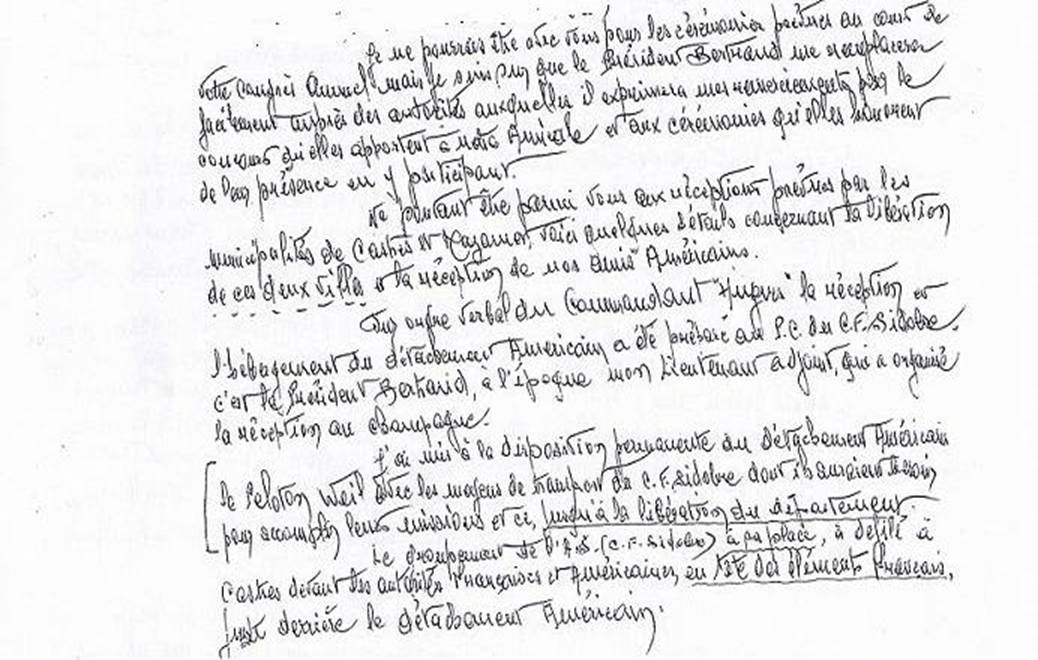 Je ne pourrais être avec vous pour les cérémonies prévues au cours de
votre Congrès Annuel, mais je suis sûr que le Président Bertrand me remplacera
facilement auprès des autorités auxquelles il exprimera nos remerciements pour le
concours qu'elles apportent à notre Amicale et aux cérémonies qu'elles honorent
de leur présence en y participant.
Ne pouvant être parmi vous aux réceptions prévues par les
municipalités de Castres et Mazamet, voici quelques détails concernant la libération
de ces deux villes et la réception de nos amis Américains.
Sur ordre verbal du Commandant "Hugues" la réception et
l'hébergement du détachement Américain a été préparé au P.C. du C.F. Sidobre.
c'est le Président Bertrand, à l'époque mon Lieutenant adjoint, qui a organisé
la réception au champagne.
J'ai mis à la disposition permanente du détachement Américain
le Peloton Weil avec les moyens de transport du C.F. Sidobre dont ils auraient besoin
pour accomplir leurs missions et ci, jusqu'à la libération du département.
Le groupement de l'A.S. (C.F. Sidobre) à sa place, à défilé à
Castres devant les autorités Françaises et Américaines, en tête des éléments Français,
juste derrière le détachement Américain.